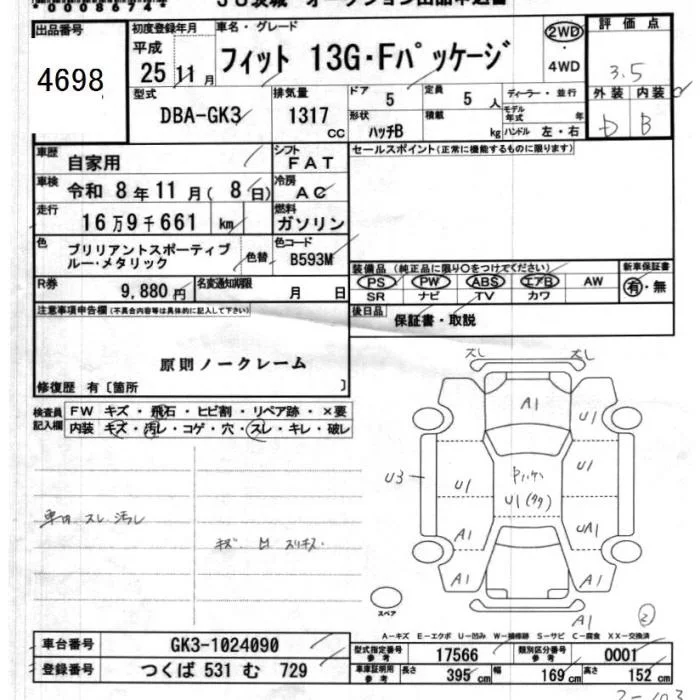 出品番号
4698
初度登録年月
平成
25 11月
車名・グレード
フィット 13G・Fパッケージ
2WD
・
4WD
評価点
3.5
外装 内装
D B
型式
DBA-GK3
排気量
1317
CC
ドア
5
定員
5 人
ディーラー・並行
形状
ハッチB
積載
kg
モデル年式
年
ハンドル 左・右
車歴
自家用
シフト
FAT
セールスポイント(正常に機能するものに限ります)
車検
令和 8年11月( 8日)
冷房
AC
走行
16万9千661 km
燃料
ガソリン
色
ブリリアントスポーティブ
ルー・メタリック
色替
色コード
B593M
装備品 (純正品に限り○をつけてください)
新車保証書
PS PW ABS エアB AW
有・無
SR ナビ TV カワ
R券
9,880円
名変通知期限
月 日
後日品
保証書・取説
注意事項申告欄(不具合内容等は具体的に記入して下さい)
原則ノークレーム
修復歴 有〔箇所 〕
検査員
記入欄
FW キズ・飛石・ヒビ割・リペア跡・×要
内装 キズ・汚レ・コゲ・穴・スレ・キレ・破レ
車内 スレ 汚レ
キズ 凹 スリキズ
A1
U1
U3
U1
U1
U1
A1
UA1
A1
A1
スペア
A1
②
A-キズ E-エクボ U-凹み W-補修跡 S-サビ C-腐食 XX-交換済
車台番号
GK3-1024090
型式指定番号
参考
17566
類別区分番号
参考
0001
登録番号
つくば 531 む 729
車庫証明用
参考
長さ
395 cm
幅
169 cm
高さ
152 cm